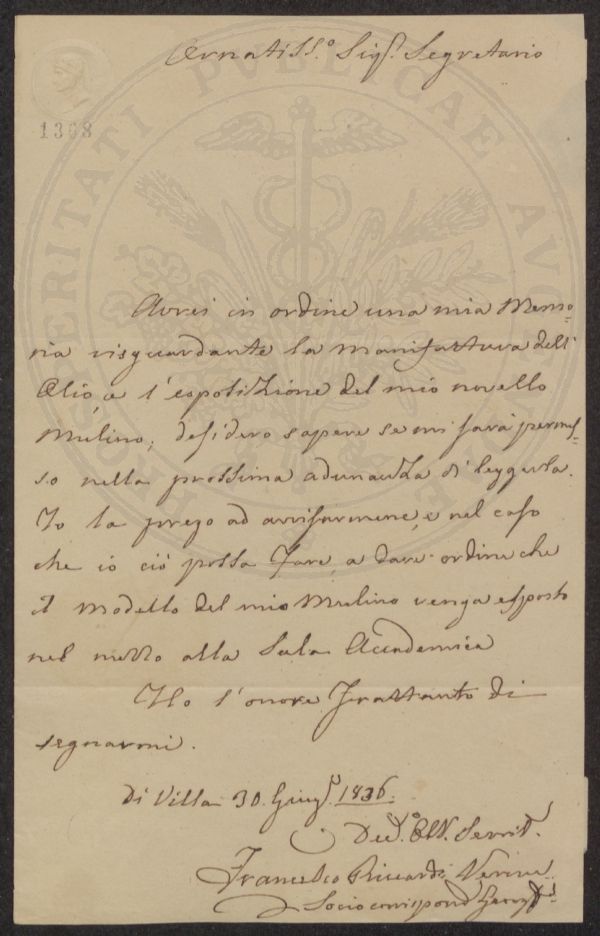 Ornatiss.º Sigʳ. Segretario
1308
PROSPERITATI PUBLICAE AUGENDAE
Avrei in ordine una mia Memo=
ria risguardante la manifattura dell'
Olio, e l'esposizione del mio novello
Mulino; desidero sapere se mi sarà permes=
so nella prossima adunanza di leggerla.
Io la prego ad avvisarmene, e nel caso
che io ciò possa fare, a dare ordine che
il modello del mio Mulino venga esposto
nel mezzo alla Sala Accademica
Ho l'onore frattanto di
segnarmi.
Di Villa 30. Giugº. 1836.
Devº. Obb. Servitʳ.
Francesco Riccardi Vernac.
Socio corrispond.